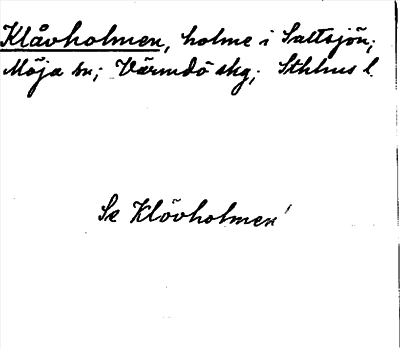 Klåvholmen, holme i Saltsjön;
Möja sn; Värmdö skg; Sthlms l.
Se Klövholmen!